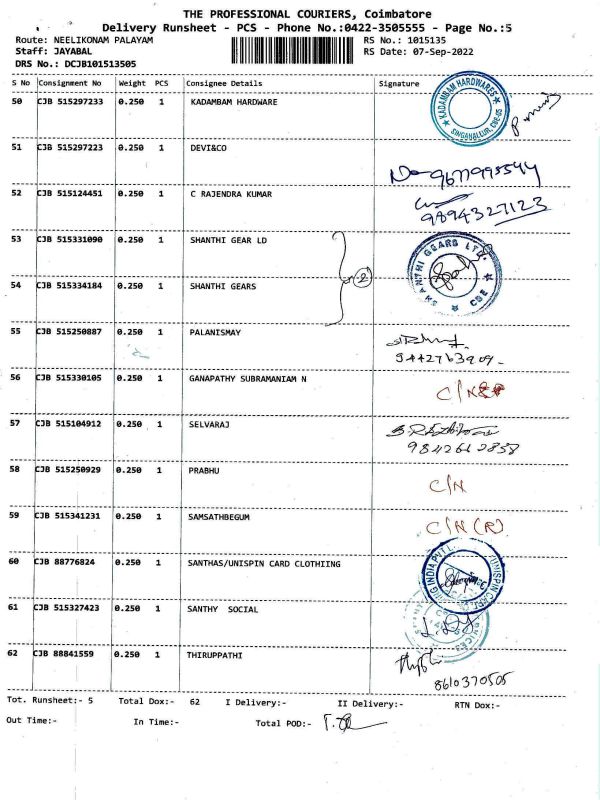 THE PROFESSIONAL COURIERS, Coimbatore
Delivery Runsheet - PCS - Phone No.:0422-3505555 - Page No.:5
Route: NEELIKONAM PALAYAM RS No.: 1015135
Staff: JAYABAL RS Date: 07-Sep-2022
DRS No.: DCJB101513505
S No Consignment No Weight PCS Consignee Details Signature
50 CJB 515297233 0.250 1 KADAMBAM HARDWARE KADAMBAM HARDWARES SINGANALLUR, CBE-05
51 CJB 515297223 0.250 1 DEVI&CO
52 CJB 515124451 0.250 1 C RAJENDRA KUMAR 9894327123
53 CJB 515331090 0.250 1 SHANTHI GEAR LD SHANTHI GEARS LTD. CBE
2
54 CJB 515334184 0.250 1 SHANTHI GEARS
55 CJB 515250887 0.250 1 PALANISMAY
56 CJB 515330105 0.250 1 GANAPATHY SUBRAMANIAM N C/N
57 CJB 515104912 0.250 1 SELVARAJ
58 CJB 515250929 0.250 1 PRABHU C/N
59 CJB 515341231 0.250 1 SAMSATHBEGUM C/N (R)
60 CJB 88776824 0.250 1 SANTHAS/UNISPIN CARD CLOTHIING
61 CJB 515327423 0.250 1 SANTHY SOCIAL
62 CJB 88841559 0.250 1 THIRUPPATHI
8610370505
Tot. Runsheet:- 5 Total Dox:- 62 I Delivery:- II Delivery:- RTN Dox:-
Out Time:- In Time:- Total POD:-